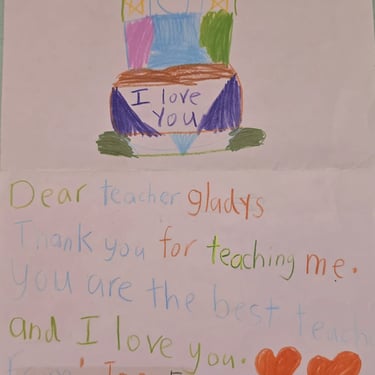 I love
You
Dear teacher gladys
Thank you for teaching me.
You are the best
and I love you.